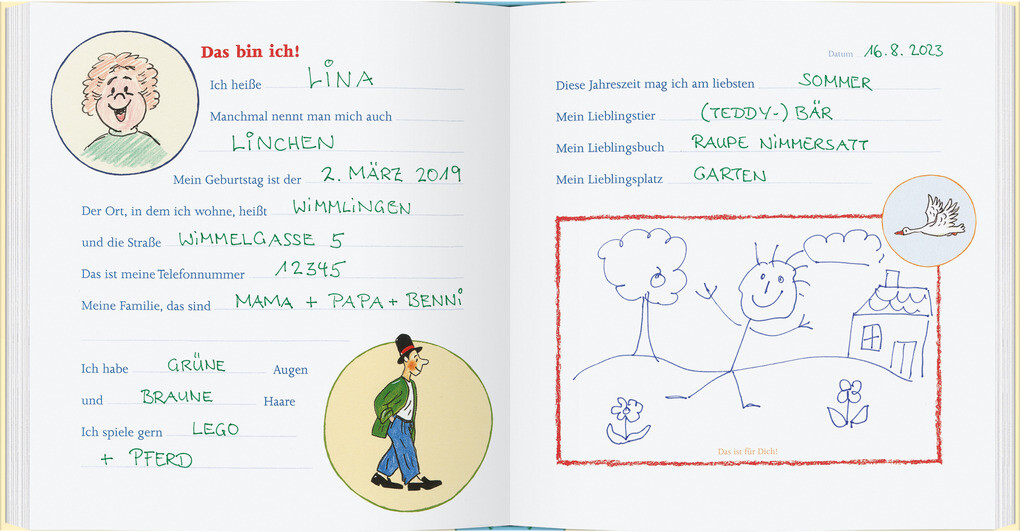 Das bin ich!
Ich heiße LINA
Manchmal nennt man mich auch
LINCHEN
Mein Geburtstag ist der 2. MÄRZ 2019
Der Ort, in dem ich wohne, heißt WIMMLINGEN
und die Straße WIMMELGASSE 5
Das ist meine Telefonnummer 12345
Meine Familie, das sind MAMA + PAPA + BENNI
Ich habe GRÜNE Augen
und BRAUNE Haare
Ich spiele gern LEGO
+ PFERD
Datum 16.8.2023
Diese Jahreszeit mag ich am liebsten SOMMER
Mein Lieblingstier (TEDDY-) BÄR
Mein Lieblingsbuch RAUPE NIMMERSATT
Mein Lieblingsplatz GARTEN
Das ist für Dich!